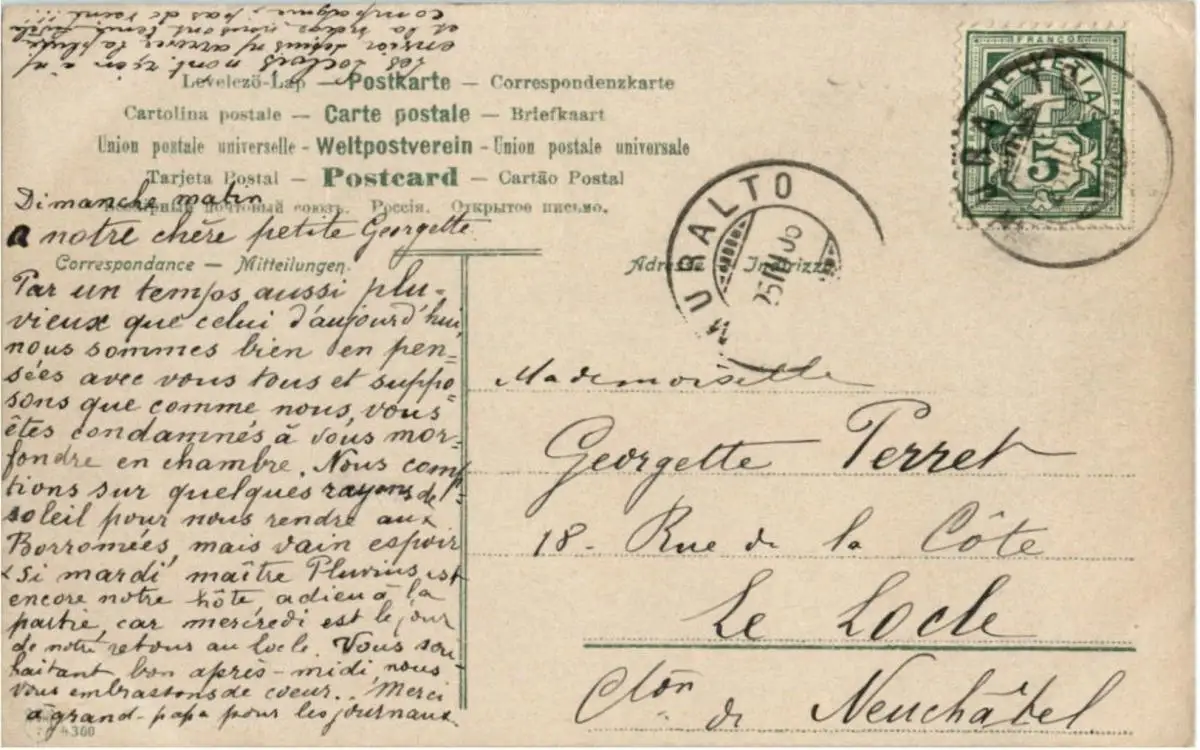 Levelezö-Lap — Postkarte — Correspondenzkarte
Cartolina postale — Carte postale — Briefkaart
Union postale universelle - Weltpostverein - Union postale universale
Tarjeta Postal — Postcard — Cartão Postal
Всемірный почтовый союзъ. Россія. Открытое письмо.
Dimanche matin
A notre chère petite Georgette
Correspondance — Mitteilungen.
Par un temps aussi plu-
vieux que celui d'aujourd'hui,
nous sommes bien en pen-
sées avec vous tous et suppo-
sons que comme nous, vous
êtes condamnés à vous mor-
fondre en chambre. Nous comp-
tions sur quelques rayons de
soleil pour nous rendre aux
Borromées, mais vain espoir
Si mardi, maître Pluvius est
encore notre hôte, adieu à la
partie, car mercredi est le jour
de notre retour au Locle. Vous sou-
haitant bon après-midi, nous
vous embrassons de coeur. Merci
à grand-papa pour les journaux.
4300
et la neige
compagnie, pas de
FRANCO
HELVETIA
5
MURALTO
MURALTO
Mademoiselle
Georgette Perret
18 - Rue de la Côte
Le Locle
Cton de Neuchâtel